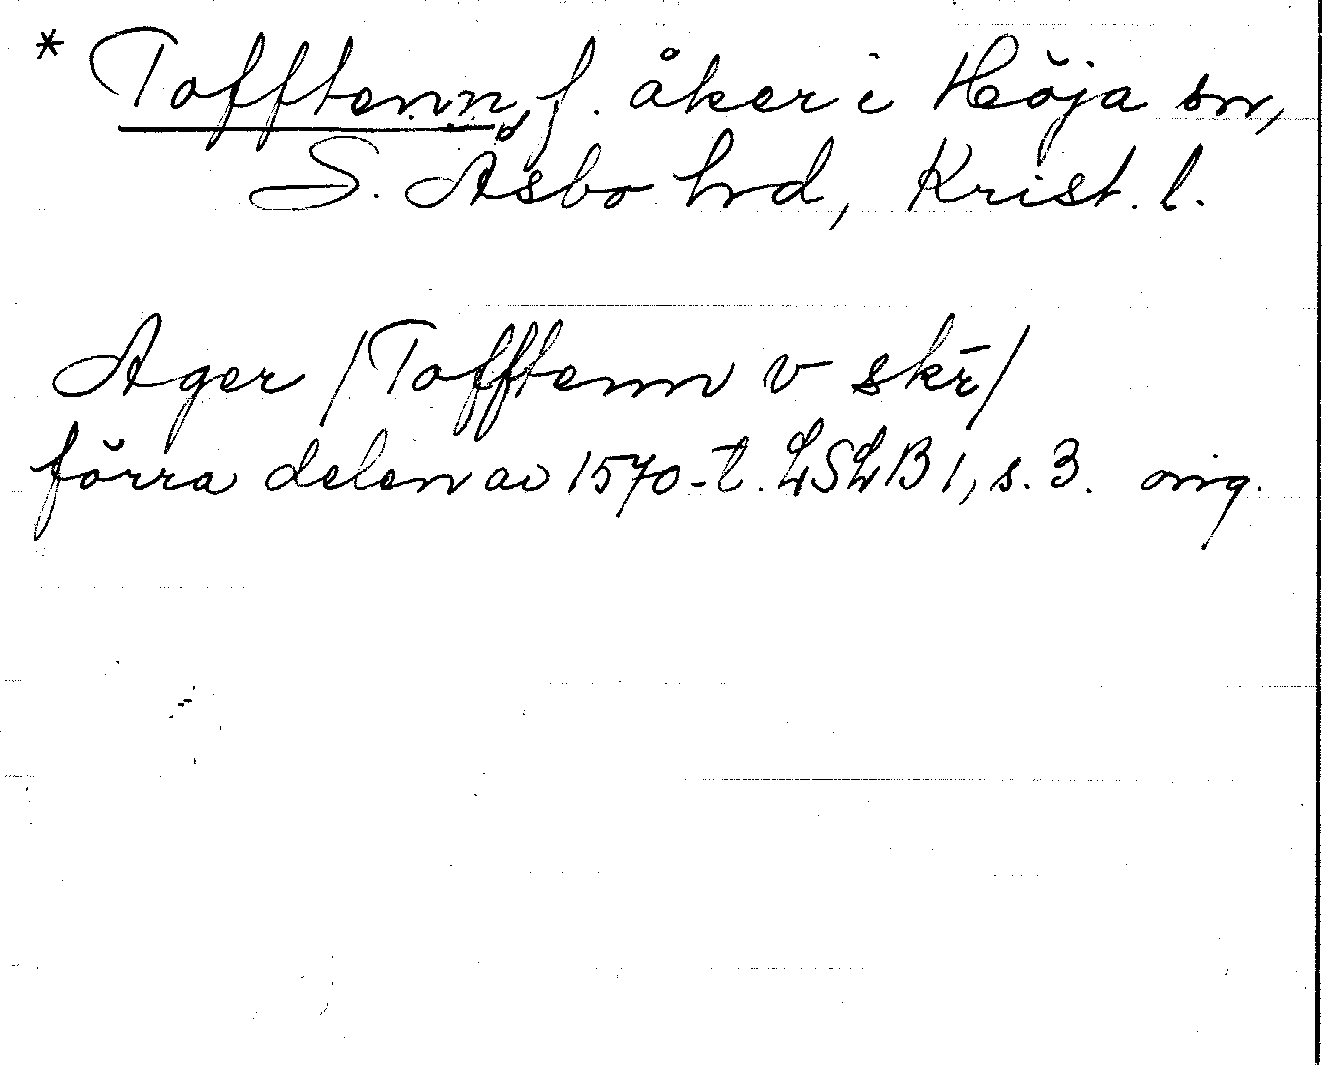 * Tofftenn, f. åker i Höja sn,
S. Åsbo hrd, Krist. l.
Ager /Tofftenn v skr/
förra delen av 1570-t. LSLB 1, s. 3. orig.